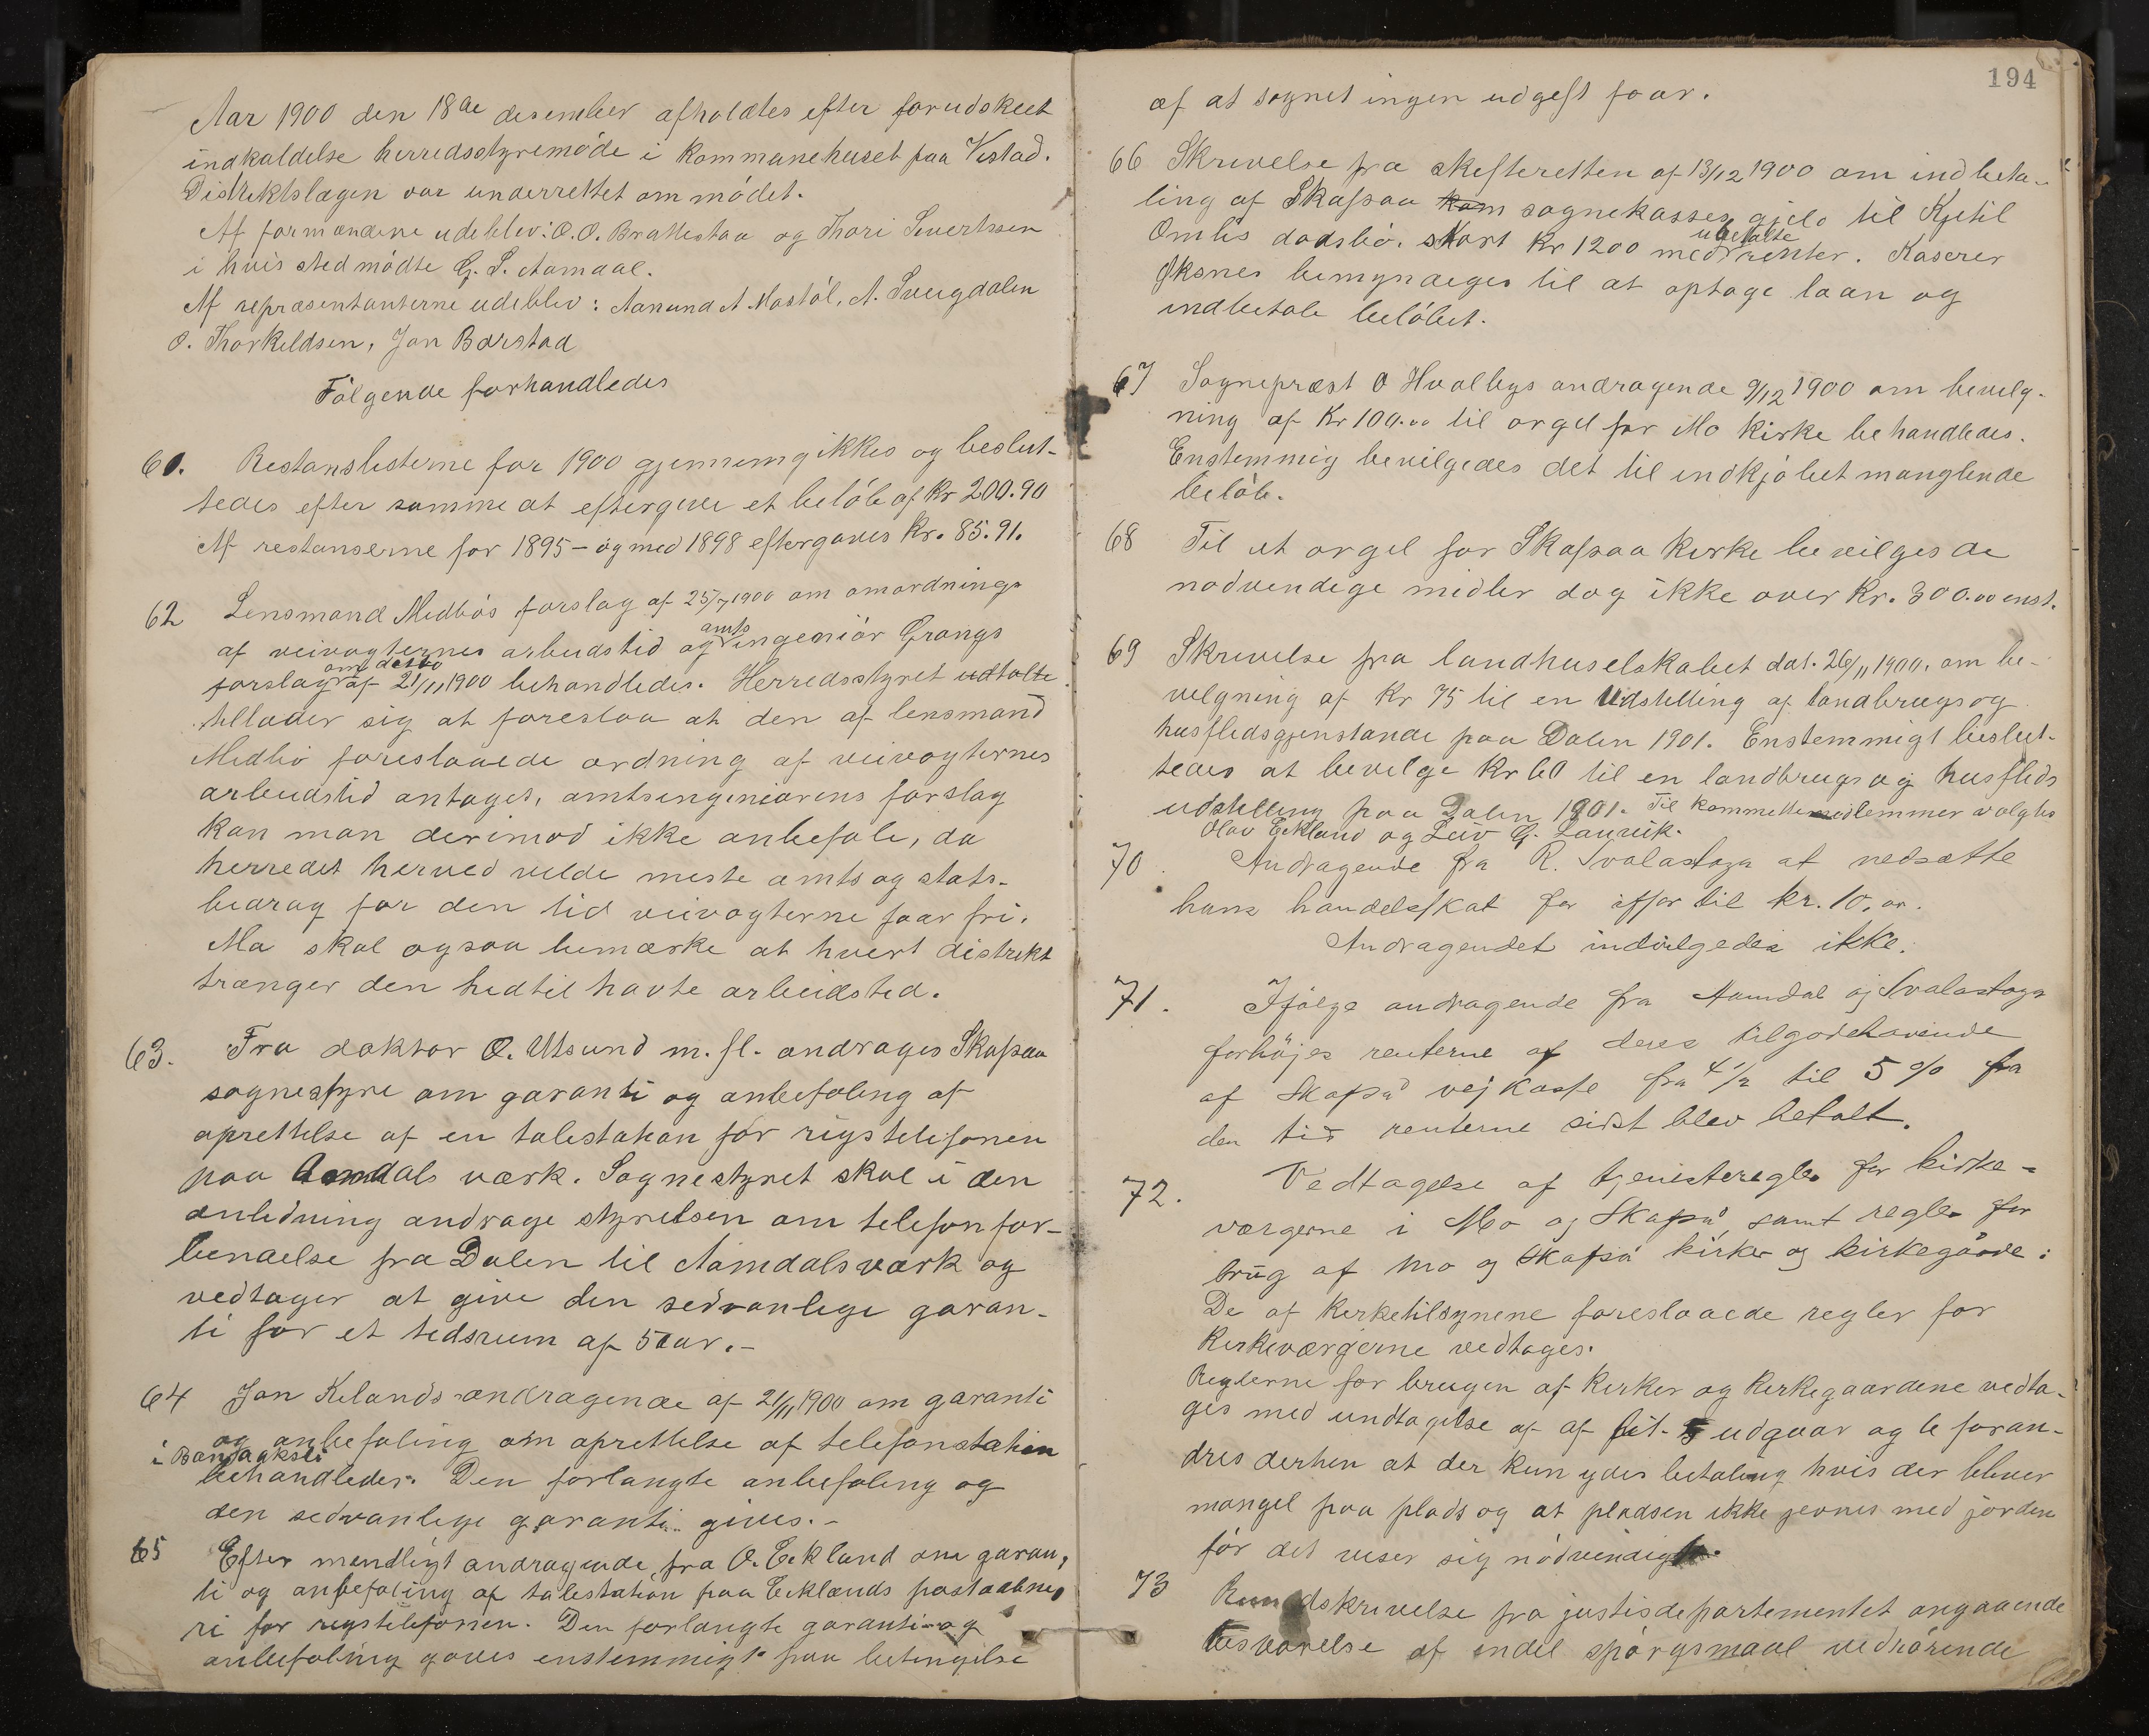 Aar 1900 den 18de desember afholdtes efter forudskeet
indkaldelse herredsstyremöde i kommunehuset paa Vistad.
Distriktslægen var underrettet om mödet.
Af formændene udeblev: O. O. Brattestaa og Thori Sivertssen
i hvis sted mödte G. S. Aamdal.
Af repræsentanterne udeblev: Aanund A. Mostöl, A. Sveigdalen
O. Thorkeldsen, Jon Borstad
Fölgende forhandledes
61. Restanslisterne for 1900 gjennemgikkes og beslut-
tedes efter samme at eftergive et belöb af kr 200.90
Af restanserne for 1895 - og med 1898 eftergaves kr. 85.91.
62 Lensmand Medbös forslag af 25/7 1900 om omordnings
af veivogternes arbeidstid og amts ingeniör Grangs
forslag om dette af 21/11 1900 behandledes. Herredsstyret udtalte
tillader sig at foreslaa at den af lensmand
Medbö foreslaaede ordning af veivogternes
arbeidstid antages, amtsingeniørens forslag
kan man derimod ikke anbefale, da
herredet herved vilde meste amts og stats-
bedrag for den tid veivogterne faar fri.
Ma skal ogsaa bemærke at hvert distrikt
trænger den hedtil havte arbeidsted.
63. Fra doktor O. Utsund m. fl. andrages Skafsaa
sognestyre om garanti og anbefaling af
oprettelse af en talestation for rigstelefonen
paa Aamdals værk. Sognestyret skal i den
anledning andrage styrelsen om telefonfor-
bendelse fra Dalen til Aamdalsværk og
vedtager at give den sedvanlige garan-
ti for et tidsrum af 5 aar.-
64 Jon Kilands andragende af 21/11 1900 om garanti
og anbefaling om oprettelse af telefonstation
i Bandaksli
behandledes. Den forlangte anbefaling og
den sedvanlige garanti gives.-
65 Efter mundligt andragende fra O. Eekland om garan-
ti og anbefaling af talestation paa Eeklands postaabne-
ri for rigstelefonen. Den forlangte garanti og
anbefaling gaves enstemmigt paa betingelse
194
af at sognet ingen udgift faar.
66 Skrivelse fra skifteretten af 13/12 1900 om indbeta-
ling af Skafsaa kom sognekasses gjeld til Kjetil
Omlis dødsbö. stort kr 1200 med ubetalte renter. Kaserer
Øksnes bemyndiges til at optage laan og
indbetale belöbet.
67 Sogneprest O Hvalbys andragende 9/12 1900 om bevilg-
ning af kr 100.00 til orgel for Mo kirke behandledes.
Enstemmig bevilgedes det til indkjöbet manglende
belöb.
68 Til et orgel for Skafsaa kirke bevilges de
nødvendige midler dog ikke over kr. 300.00 enst.
69 Skrivelse fra landhuselskabet dat. 26/11 1900. om be-
velgning af kr 75 til en Udstilling af landbrugs og
husflidsgjenstande paa Dalen 1901. Enstemmigt beslut-
tedes at bevilge kr 60 til en landbrugs og husflids
udstilling paa Dalen 1901. Til kommittemedlemmer valgtes
Olav Eekland og Leiv G. Laurik.
70. Andragende fra R. Svalastoga at nedsætte
hans handelsskat for iffor til kr. 10.00.
Andragendet indvilgedes ikke.
71. Ifölge andragende fra Aamdal og Svalastoga
forhöjes renterne af deres tilgodehavende
af Skafså vejkasse fra 4 1/2 til 5 % fra
den tid renterne sidst blev betalt.
72. Vedtagelse af tjenesteregler for kirke-
værgerne i Mo og Skafså, samt regler for
brug af Mo og Skafså kirker og kirkegårde:
De af kirketilsynene foreslaaede regler for
kirkeværgerne vedtages.
Reglerne for brugen af kirker og kirkegaardene vedta-
ges med undtagelse af af lit. 5 udgaar og 6 foran-
dres derhen at der kun ydes betaling hvis der bliver
mangel paa plads og at pladsen ikke jevnes med jorden
för det viser sig nödvendigt.
73 Rundskrivelse fra justisdepartementet angaaende
besvarelse af endel spörgsmaal vedrörende